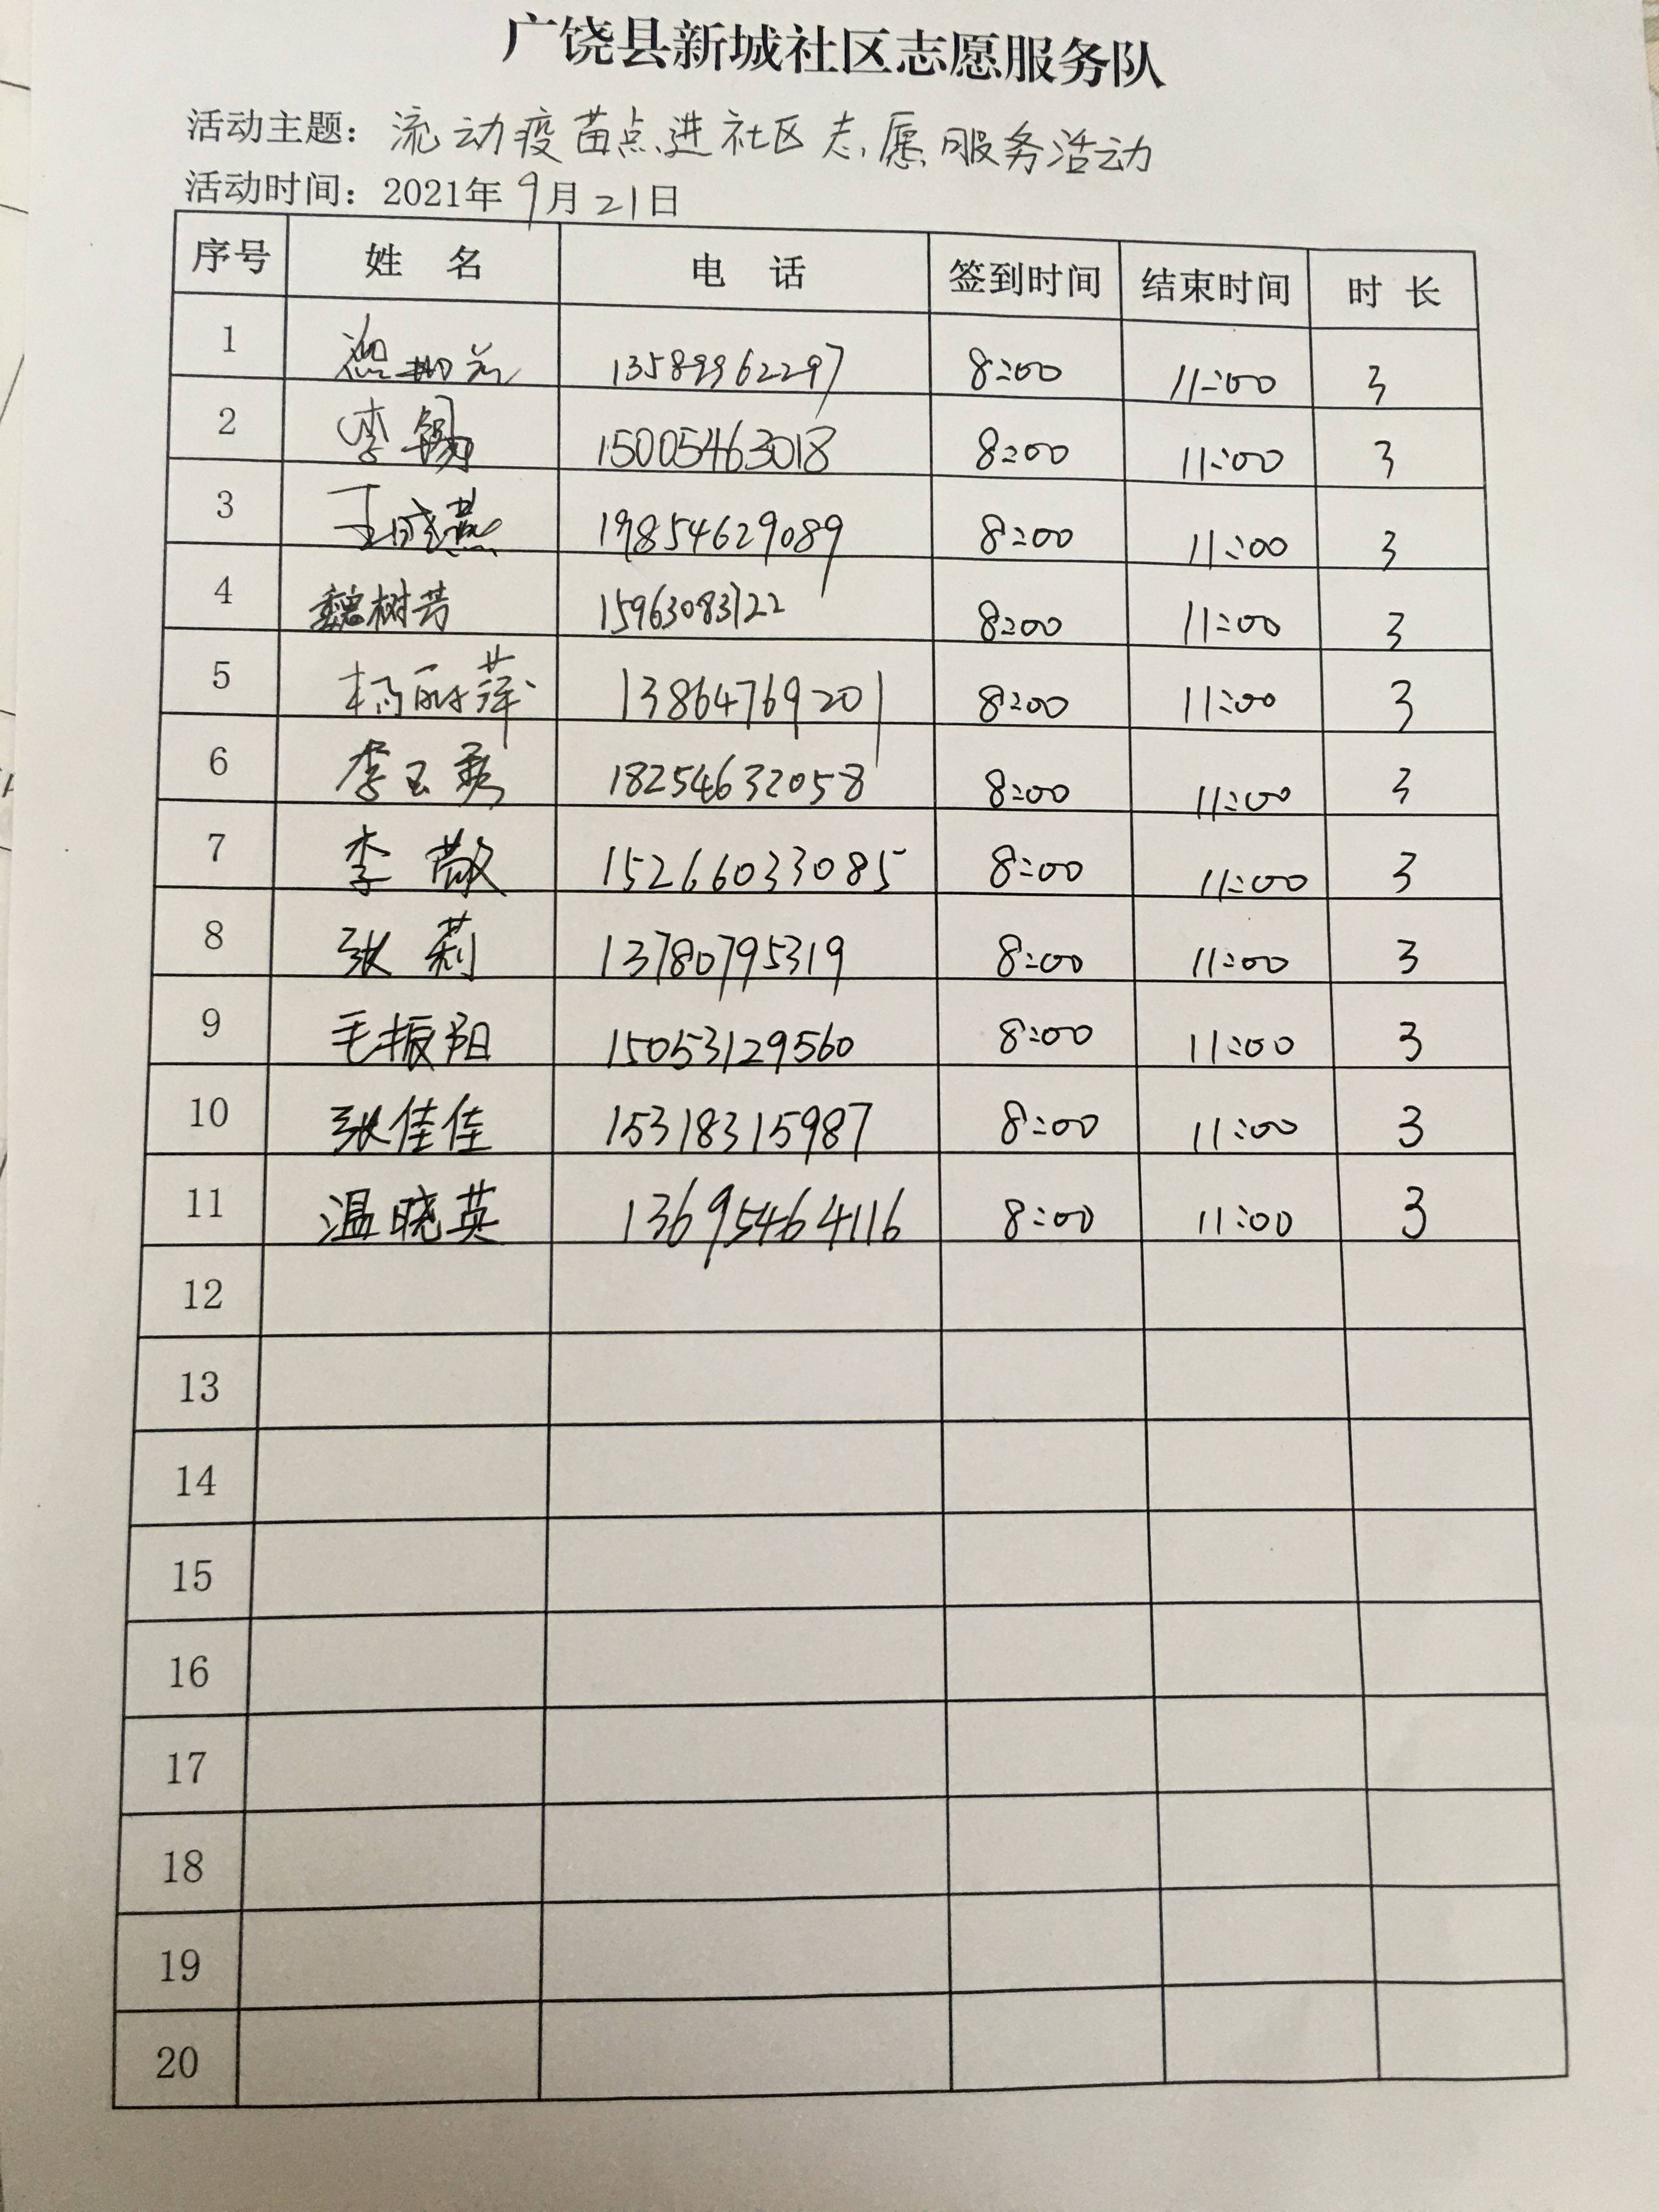 广饶县新城社区志愿服务队
活动主题：流动疫苗点进社区志愿服务活动
活动时间：2021年9月21日
序号 姓名 电话 签到时间 结束时间 时长
1 13589962297 8:00 11:00 3
2 李锡 15005463018 8:00 11:00 3
3 王晓燕 19854629089 8:00 11:00 3
4 魏树芳 15963083122 8:00 11:00 3
5 杨丽萍 13864769201 8:00 11:00 3
6 李玉秀 18254632058 8:00 11:00 3
7 李敬 15266033085 8:00 11:00 3
8 张莉 13780795319 8:00 11:00 3
9 毛振阳 15053129560 8:00 11:00 3
10 张佳佳 15318315987 8:00 11:00 3
11 温晓英 13695464116 8:00 11:00 3
12
13
14
15
16
17
18
19
20